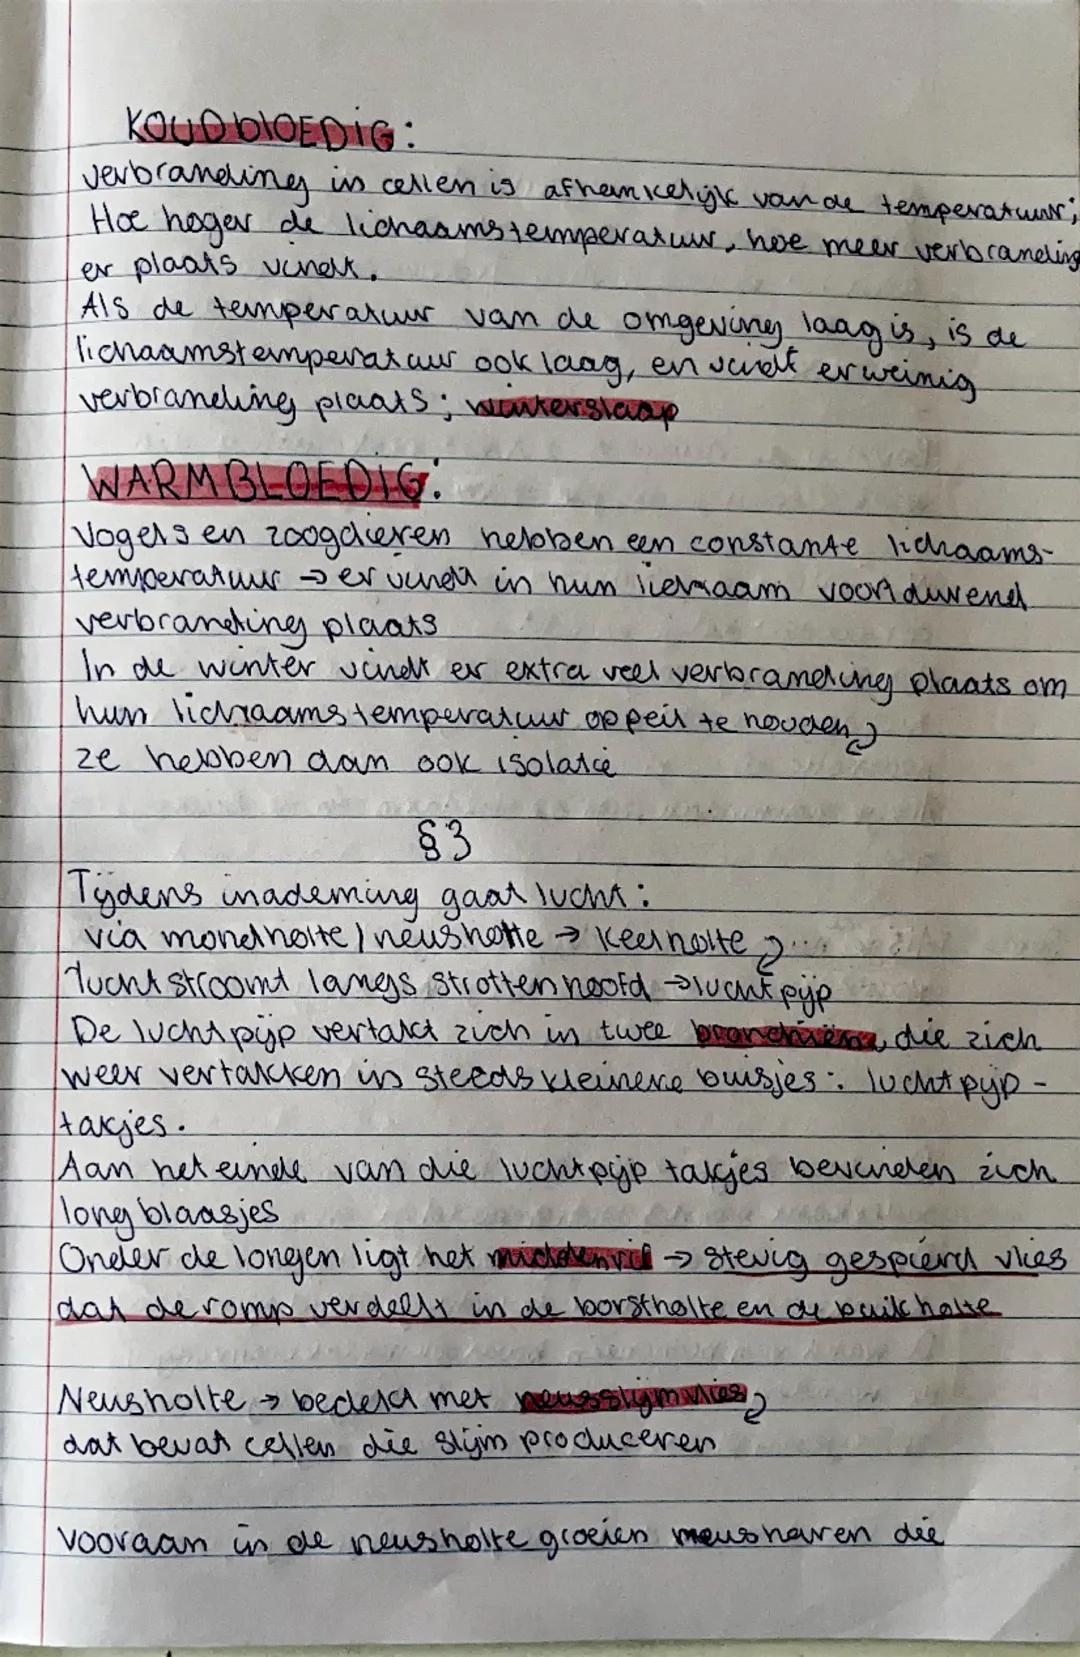 KOUDblOEDIG:
verbranding in cellen is afhankelijk van de temperatuur;
Hoe hoger de lichaamstemperatuur, hoe meer verbranding
er plaats vindt.
Als de temperatuur van de omgeving laag is, is de
lichaamstemperatuur ook laag, en vindt er weinig
verbranding plaats; winterslaap
WARMBLOEDIG:
Vogels en zoogdieren hebben een constante lichaams-
temperatuur → er vindt in hun lichaam voortdurend
verbranding plaats
In de winter vindt er extra veel verbranding plaats om
hun lichaamstemperatuur op peil te houden
ze hebben dan ook isolatie
§3
Tijdens inademing gaat lucht:
via mondholte / neusholte → keelholte
lucht stroomt langs strottenhoofd → luchtpijp
De luchtpijp vertakt zich in twee bronchiën, die zich
weer vertakken in steeds kleinere buisjes: luchtpijp-
takjes.
Aan het einde van die luchtpijp takjes bevinden zich
longblaasjes
Onder de longen ligt het middenrif → stevig gespierd vlies
dat de romp verdeelt in de borstholte en de buikholte
Neusholte → bedekt met neusslijmvlies
dat bevat cellen die slijm produceren
Vooraan in de neusholte groeien neusharen die